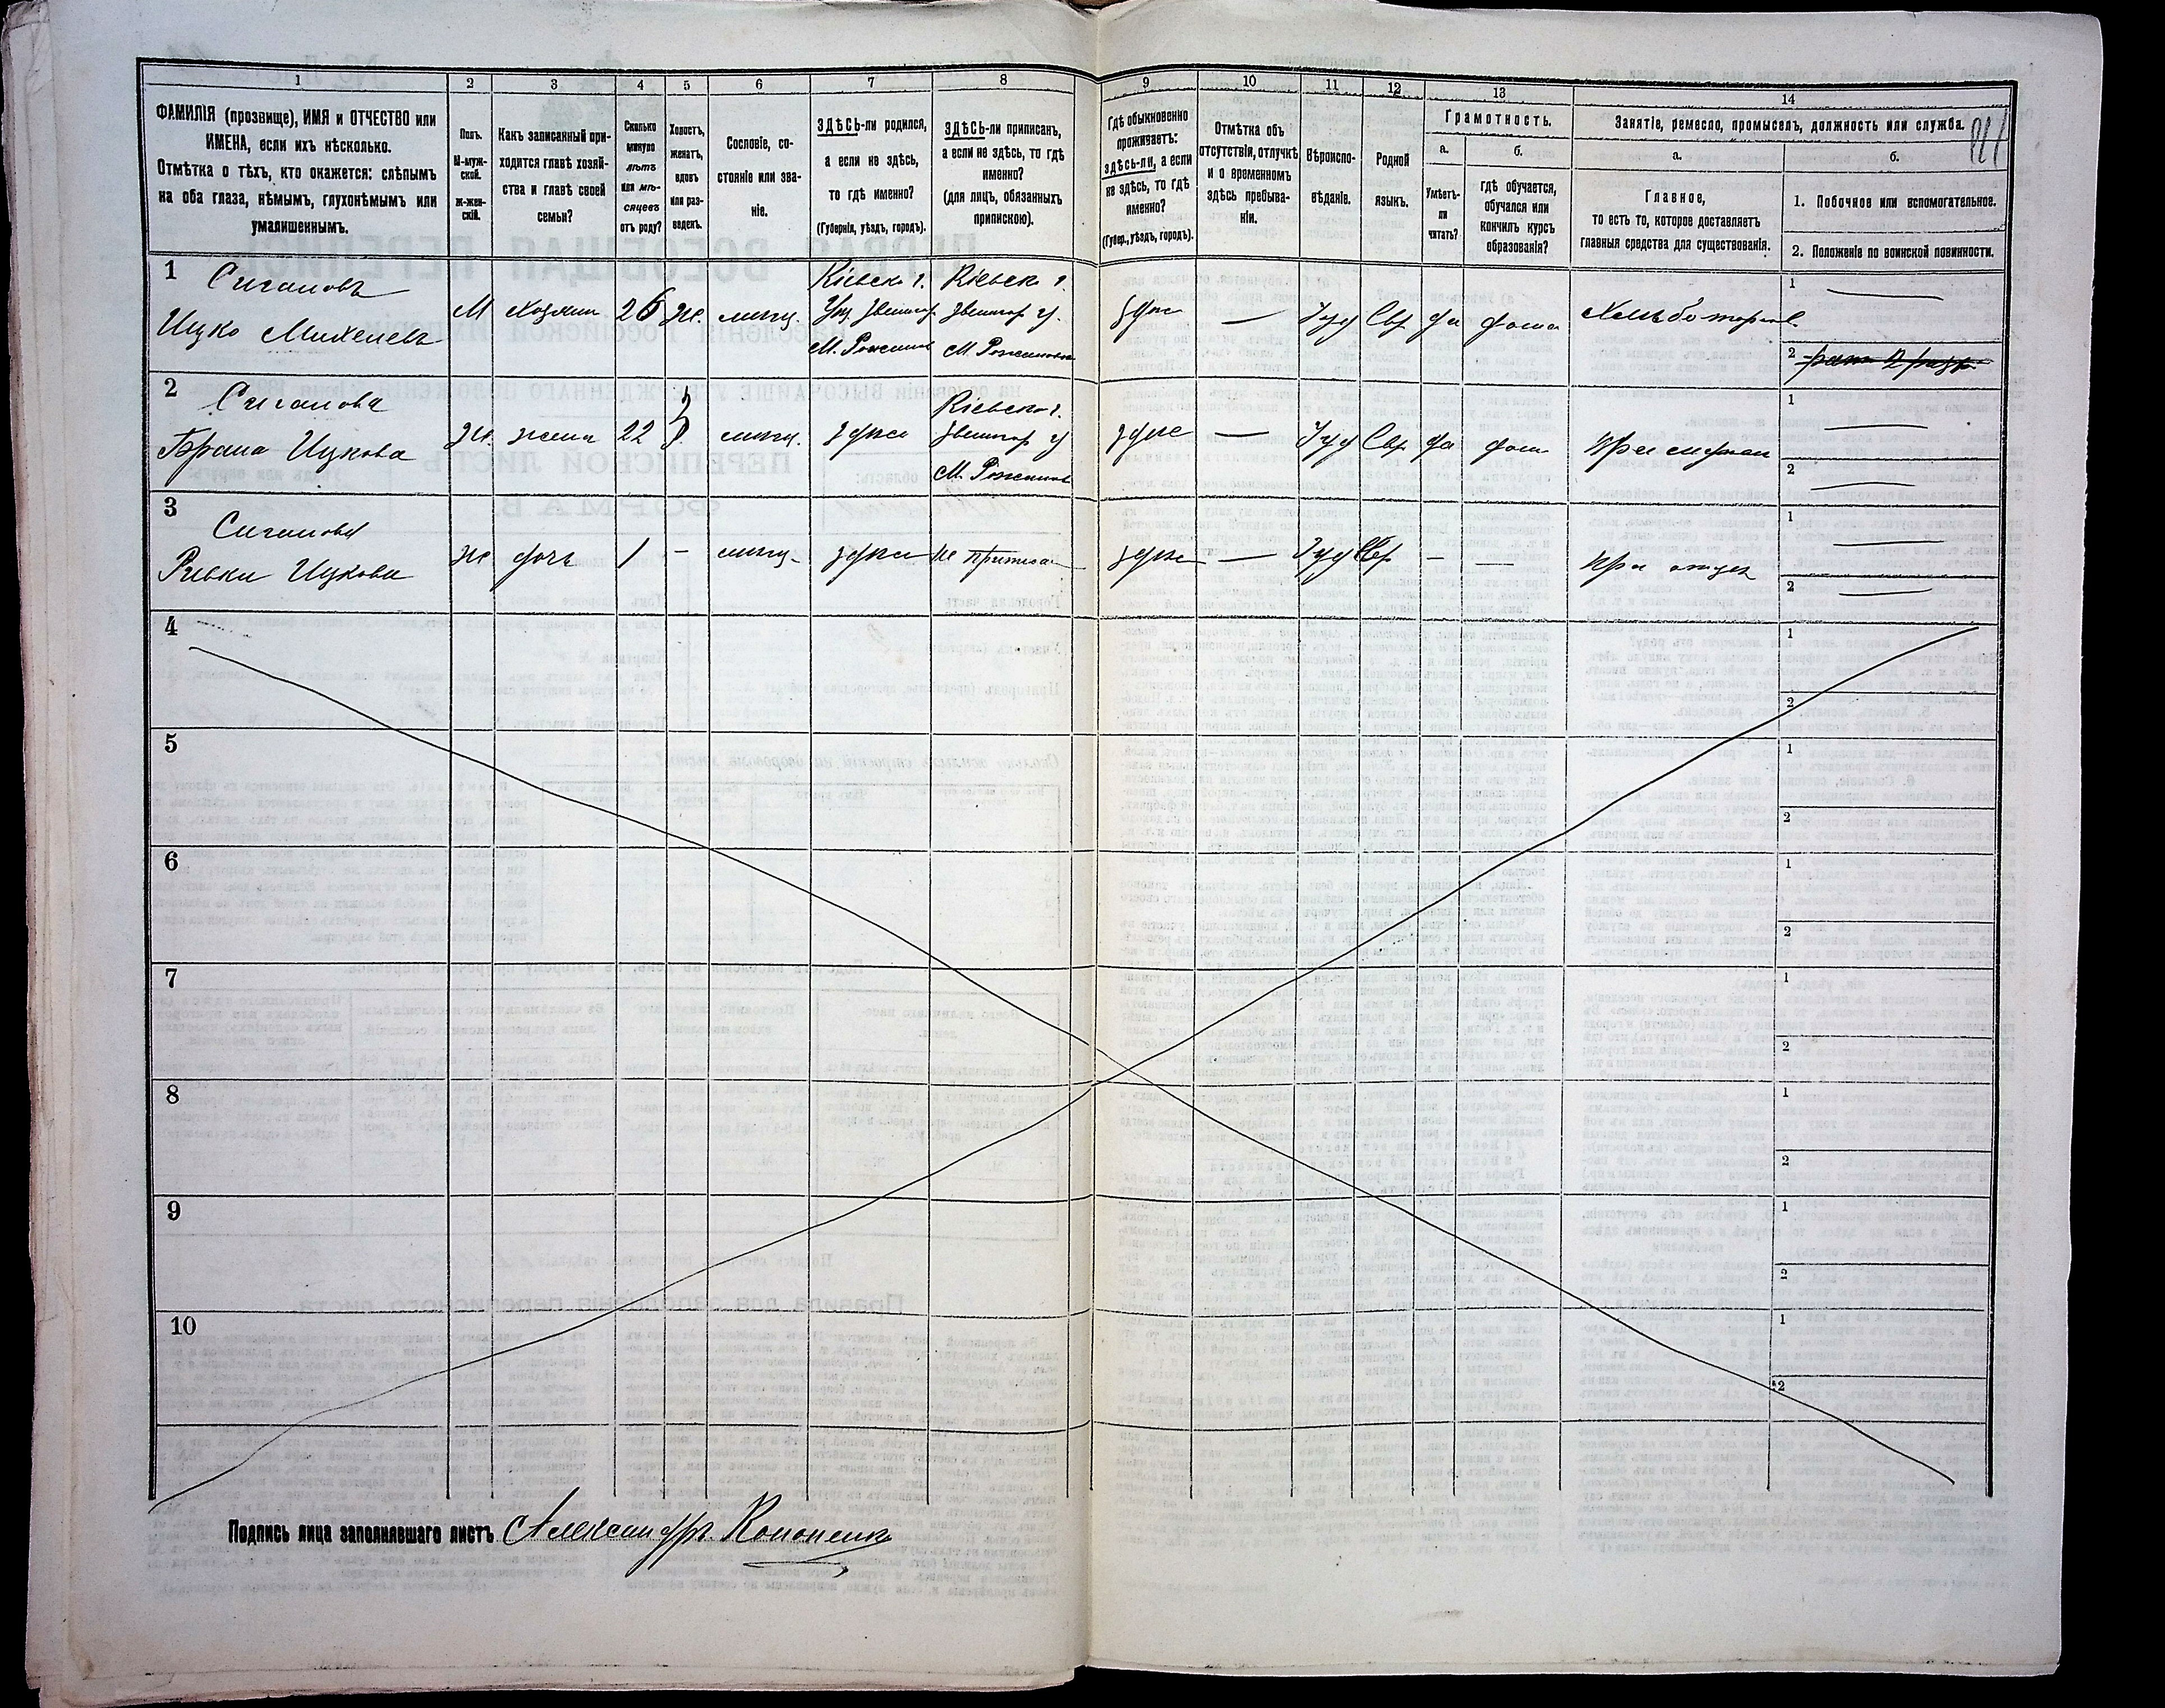 1 2 3 4 5 6 7 8 9 10 11 12 13 14
ФАМИЛІЯ (прозвище), ИМЯ и ОТЧЕСТВО или
ИМЕНА, если ихъ нѣсколько.
Отмѣтка о тѣхъ, кто окажется: слѣпымъ
на оба глаза, нѣмымъ, глухонѣмымъ или
умалишеннымъ.
Полъ.
М-муж-
ской.
Ж-жен-
скій.
Какъ записанный при-
ходится главѣ хозяй-
ства и главѣ своей
семьи?
Сколько
минуло
лѣтъ
или мѣ-
сяцевъ
отъ роду?
Холостъ,
женатъ,
вдовъ
или раз-
веденъ.
Сословіе, со-
стояніе или зва-
ніе.
ЗДѢСЬ-ли родился,
а если не здѣсь,
то гдѣ именно?
(Губернія, уѣздъ, городъ).
ЗДѢСЬ-ли приписанъ,
а если не здѣсь, то гдѣ
именно?
(для лицъ, обязанныхъ
припискою).
Гдѣ обыкновенно
проживаетъ:
здѣсь-ли, а если
не здѣсь, то гдѣ
именно?
(Губер., уѣздъ, городъ).
Отмѣтка объ
отсутствіи, отлучкѣ
и о временномъ
здѣсь пребыва-
ніи.
Вѣроиспо-
вѣданіе.
Родной
языкъ.
Грамотность.
а.
Умѣетъ-
ли
читать?
б.
гдѣ обучается,
обучался или
кончилъ курсъ
образованія?
Занятіе, ремесло, промыселъ, должность или служба.
а.
Главное,
то есть то, которое доставляетъ
главныя средства для существованія.
б.
1. Побочное или вспомогательное.
2. Положеніе по воинской повинности.
1 Сигаловъ
Ицко Михелевъ
М Хозяин 26 Ж. мѣщ.
Кіевск г.
Уѣз. Звениг.
М.
Кіевск г.
Звенигор у.
М.
здѣсь — Іуд Евр да дома Хлѣботоргов.
1 —
2 рат 2 разр.
2 Сигалова
Брана Ицкова
Ж. жена 22 З. мѣщ. здѣсь
Кіевск г.
Звенигор у
М.
здѣсь — Іуд Евр да дом При муже
1 —
2 —
3 Сигалова
Ривка Ицкова
Ж дочь 1 – мѣщ. здѣсь не приписа здѣсь — Іуд Евр – — При отце
1 —
2 —
4 1
2
5 1
2
6 1
2
7 1
2
8 1
2
9 1
2
10 1
2
Подпись лица заполнявшаго листъ Александръ Кононенко